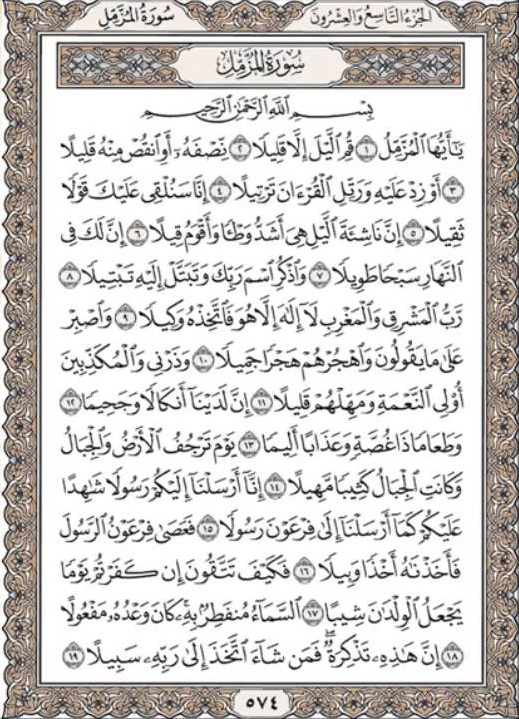 الجُزءُ التَّاسِعُ وَالعِشْرُونَ
سُورَةُ المُزَّمِّلِ
سُورَةُ المُزَّمِّلِ
بِسْمِ ٱللَّهِ ٱلرَّحْمَٰنِ ٱلرَّحِيمِ
يَٰٓأَيُّهَا ٱلْمُزَّمِّلُ ١ قُمِ ٱلَّيْلَ إِلَّا قَلِيلًا ٢ نِّصْفَهُۥٓ أَوِ ٱنقُصْ مِنْهُ قَلِيلًا
٣ أَوْ زِدْ عَلَيْهِ وَرَتِّلِ ٱلْقُرْءَانَ تَرْتِيلًا ٤ إِنَّا سَنُلْقِى عَلَيْكَ قَوْلًا
ثَقِيلًا ٥ إِنَّ نَاشِئَةَ ٱلَّيْلِ هِىَ أَشَدُّ وَطْـًٔا وَأَقْوَمُ قِيلًا ٦ إِنَّ لَكَ فِى
ٱلنَّهَارِ سَبْحًا طَوِيلًا ٧ وَٱذْكُرِ ٱسْمَ رَبِّكَ وَتَبَتَّلْ إِلَيْهِ تَبْتِيلًا ٨
رَّبُّ ٱلْمَشْرِقِ وَٱلْمَغْرِبِ لَآ إِلَٰهَ إِلَّا هُوَ فَٱتَّخِذْهُ وَكِيلًا ٩ وَٱصْبِرْ
عَلَىٰ مَا يَقُولُونَ وَٱهْجُرْهُمْ هَجْرًا جَمِيلًا ١٠ وَذَرْنِى وَٱلْمُكَذِّبِينَ
أُو۟لِى ٱلنَّعْمَةِ وَمَهِّلْهُمْ قَلِيلًا ١١ إِنَّ لَدَيْنَآ أَنكَالًا وَجَحِيمًا ١٢
وَطَعَامًا ذَا غُصَّةٍ وَعَذَابًا أَلِيمًا ١٣ يَوْمَ تَرْجُفُ ٱلْأَرْضُ وَٱلْجِبَالُ
وَكَانَتِ ٱلْجِبَالُ كَثِيبًا مَّهِيلًا ١٤ إِنَّآ أَرْسَلْنَآ إِلَيْكُمْ رَسُولًا شَٰهِدًا
عَلَيْكُمْ كَمَآ أَرْسَلْنَآ إِلَىٰ فِرْعَوْنَ رَسُولًا ١٥ فَعَصَىٰ فِرْعَوْنُ ٱلرَّسُولَ
فَأَخَذْنَٰهُ أَخْذًا وَبِيلًا ١٦ فَكَيْفَ تَتَّقُونَ إِن كَفَرْتُمْ يَوْمًا
يَجْعَلُ ٱلْوِلْدَٰنَ شِيبًا ١٧ ٱلسَّمَآءُ مُنفَطِرٌۢ بِهِۦ كَانَ وَعْدُهُۥ مَفْعُولًا
١٨ إِنَّ هَٰذِهِۦ تَذْكِرَةٌ ۖ فَمَن شَآءَ ٱتَّخَذَ إِلَىٰ رَبِّهِۦ سَبِيلًا ١٩
٥٧٤